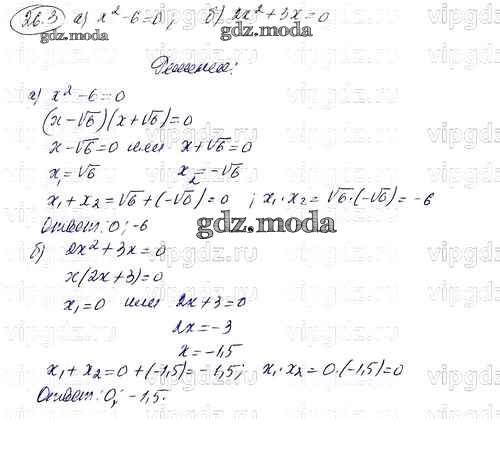 26.3 а) x² - 6 = 0; б) 2x² + 3x = 0
gdz.moda gdz.moda
Решение:
а) x² - 6 = 0
(x - √6)(x + √6) = 0
x - √6 = 0 или x + √6 = 0
x₁ = √6 x₂ = -√6
x₁ + x₂ = √6 + (-√6) = 0 ; x₁ · x₂ = √6 · (-√6) = -6
Ответ: 0; -6
gdz.moda
б) 2x² + 3x = 0
x(2x + 3) = 0
x₁ = 0 или 2x + 3 = 0
2x = -3
x = -1,5
x₁ + x₂ = 0 + (-1,5) = -1,5; x₁ · x₂ = 0 · (-1,5) = 0
Ответ: 0; -1,5.
vipgdz